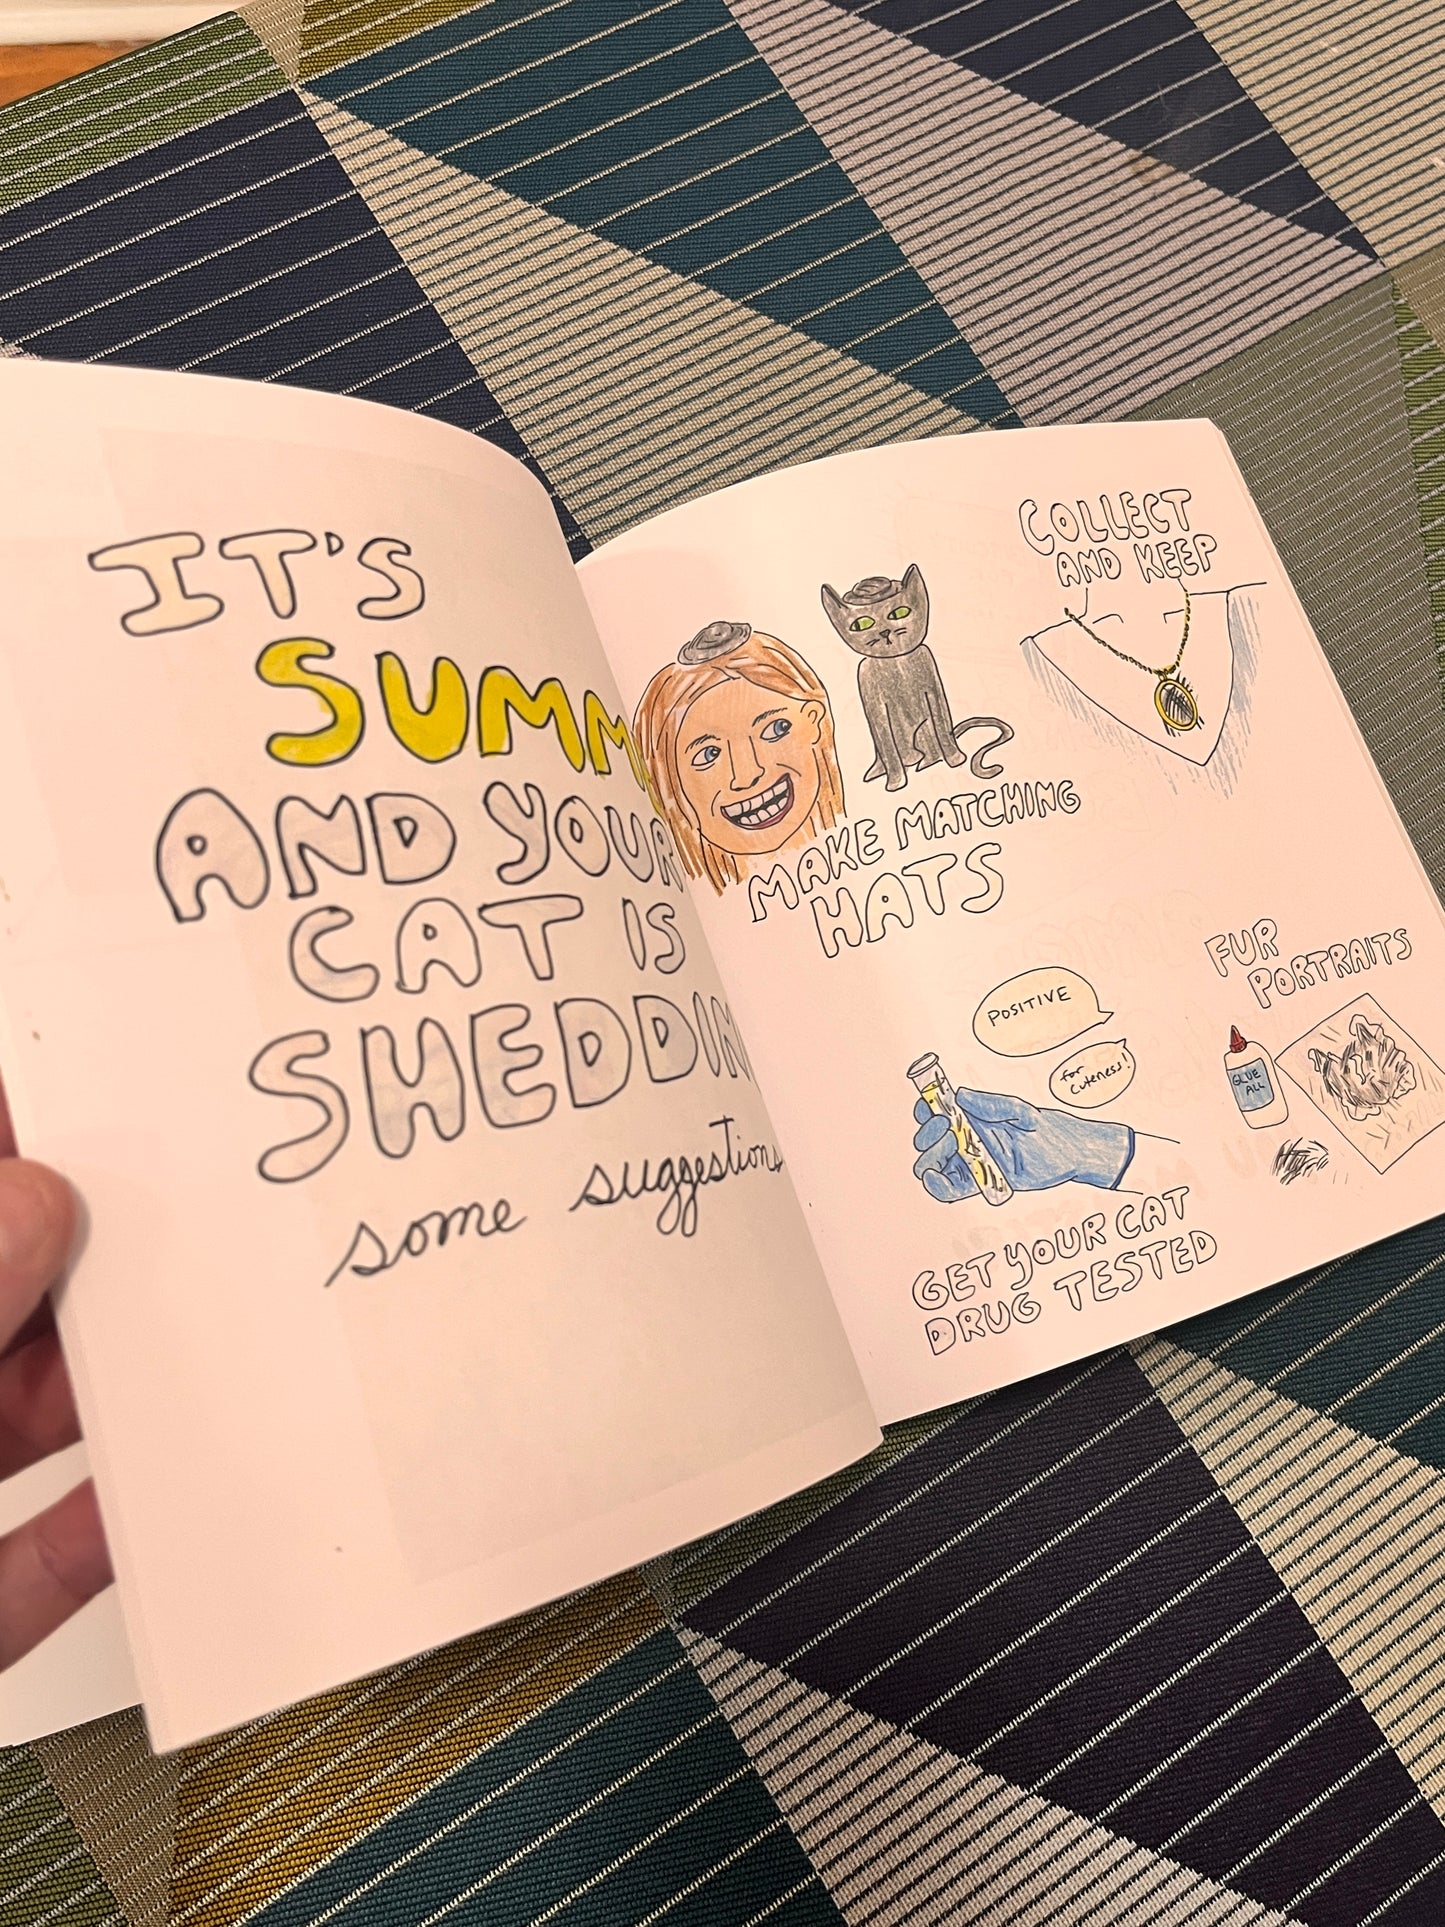 IT'S
SUMM
AND YOUR
CAT IS
SHEDDIN
some suggestions
COLLECT
AND KEEP
MAKE MATCHING
HATS
FUR
PORTRAITS
GLUE
ALL
POSITIVE
for
cuteness!
GET YOUR CAT
DRUG TESTED